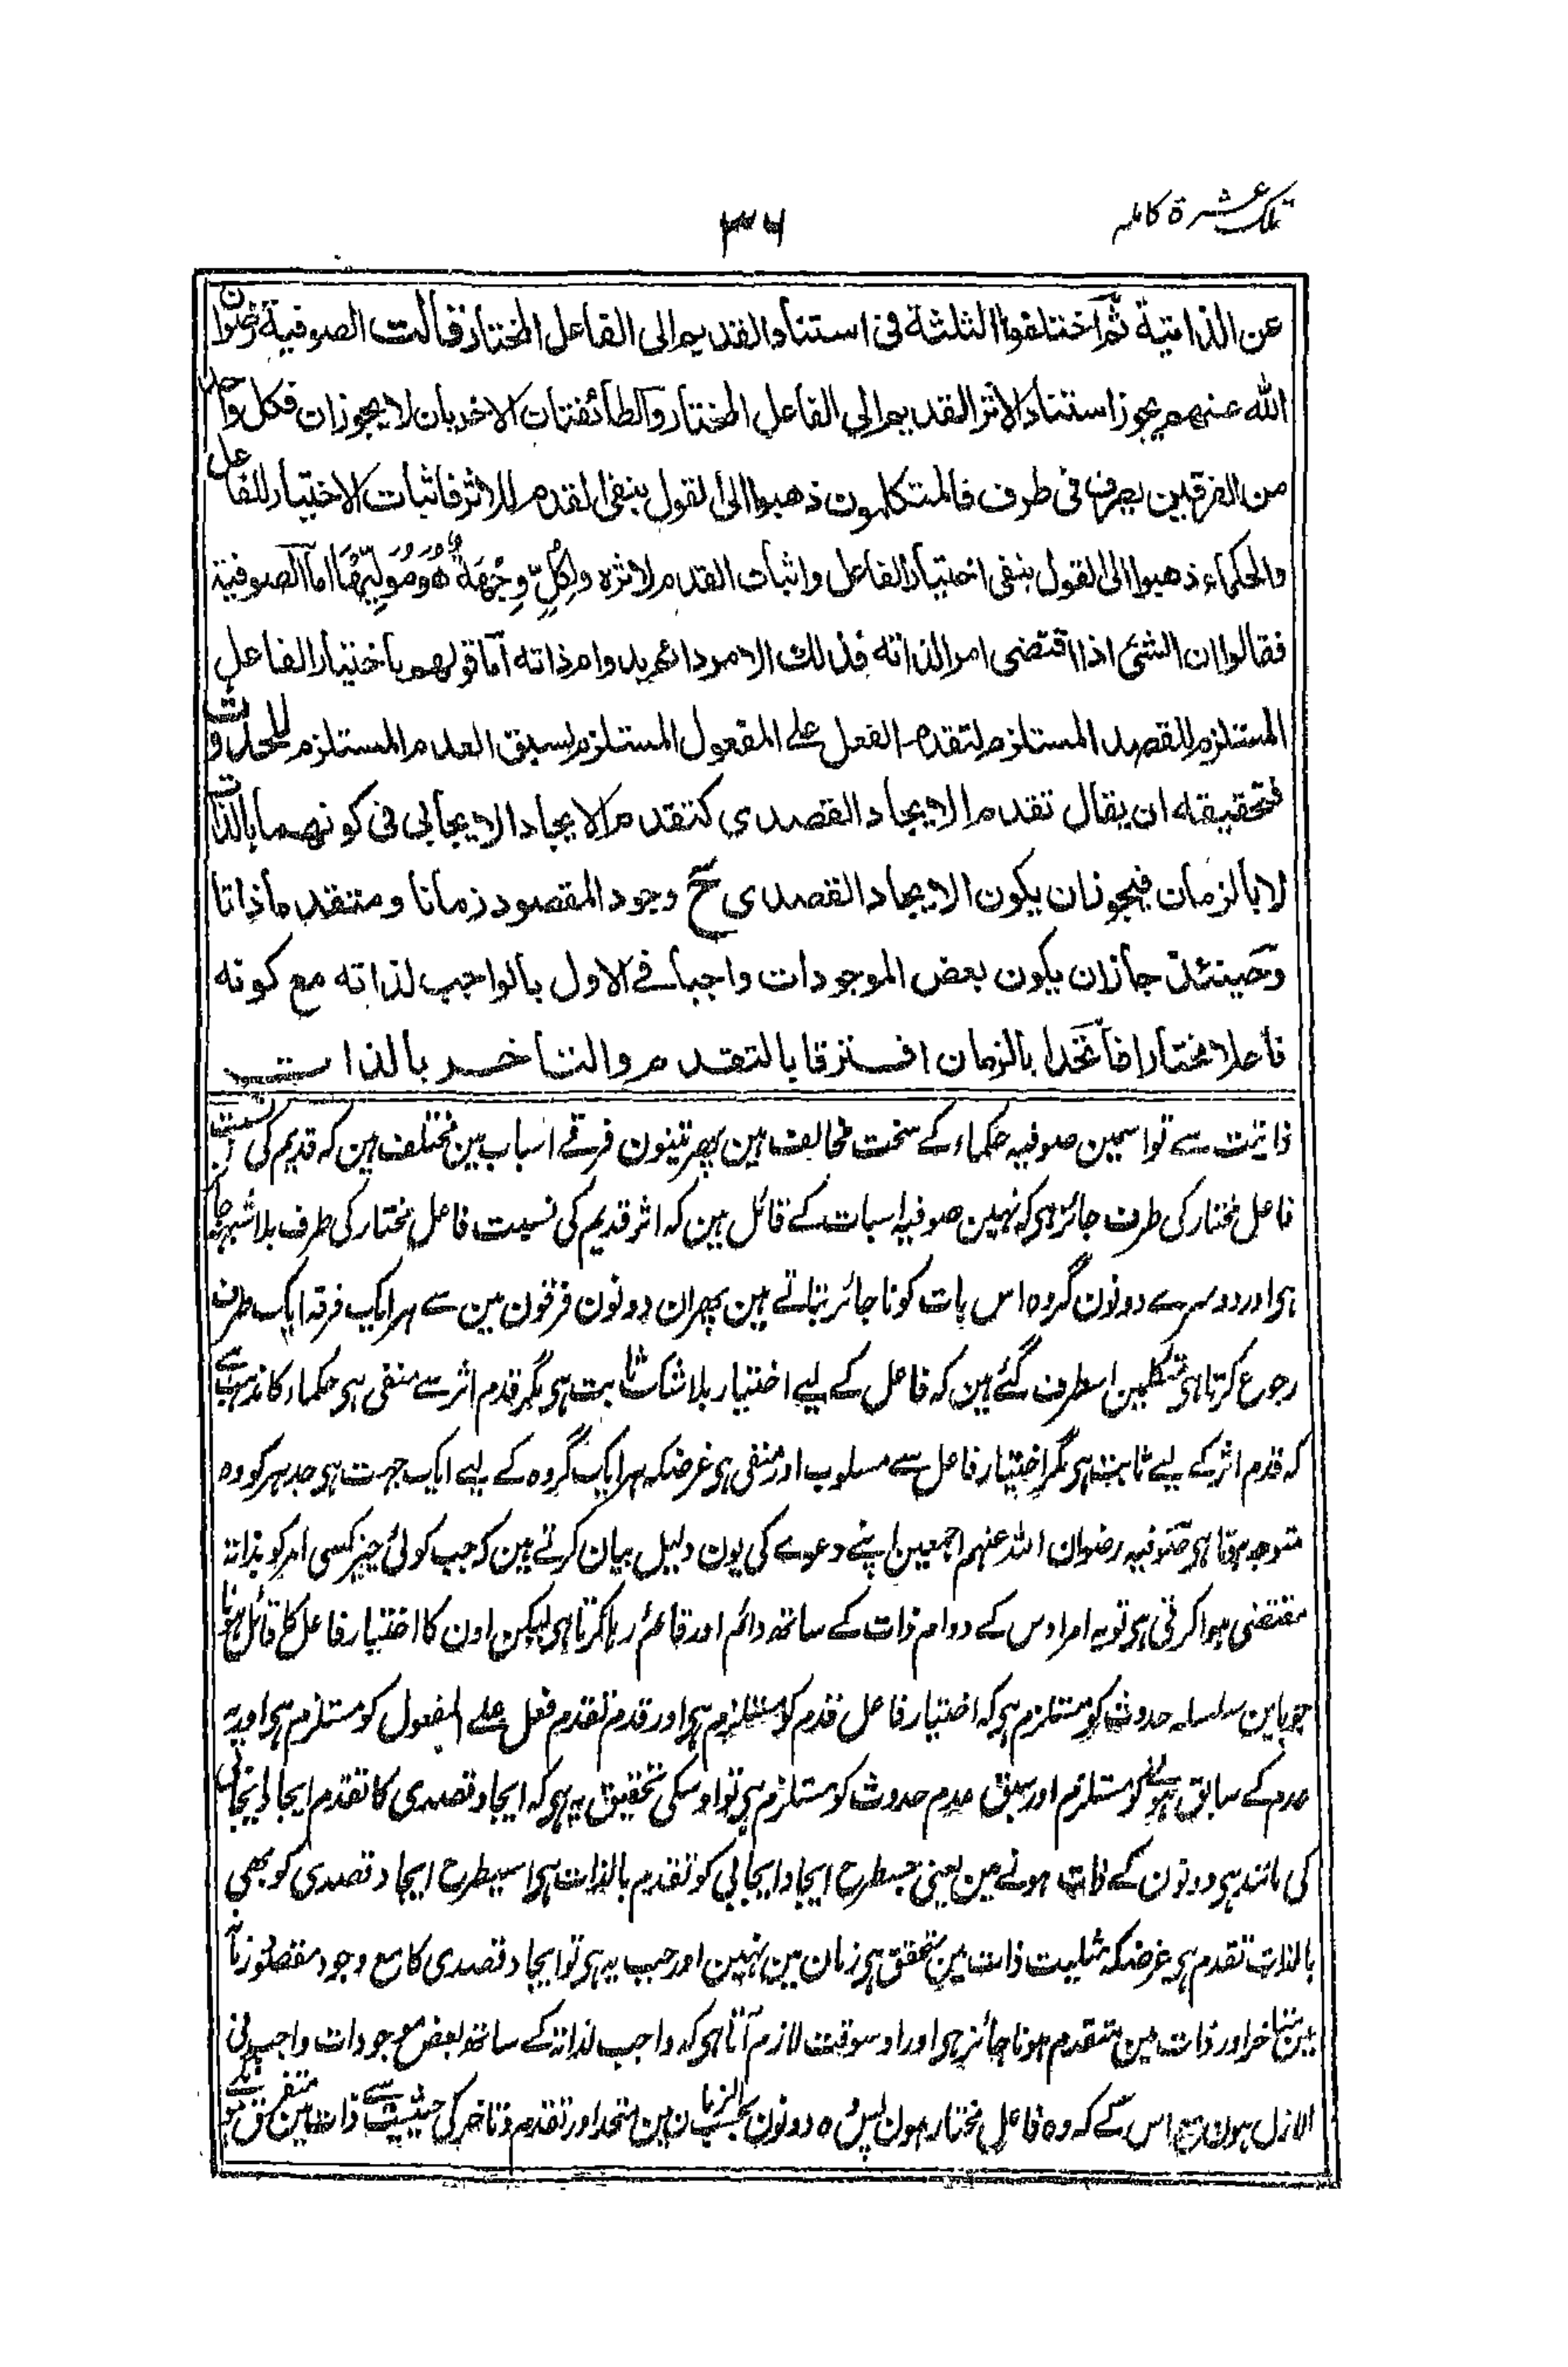 تلک عشرة کاملہ
۳۶
عن الذاتية ثم اختلفوا الثلثة فى استناد القديم الى الفاعل المختار فقالت الصوفية رضوان
الله عنهم يجوز استناد الاثر القديم الى الفاعل المختار والطائفتان الاخريان لا يجوزان فكل واحد
من الفرقين يصرف فى طرف فالمتكلمون ذهبوا الى القول بنفى القدم للاثر فاثبات الاختيار للفاعل
والحكماء ذهبوا الى القول بنفى اختيار الفاعل واثبات القدم لاثره وَلِكُلٍّ وِجْهَةٌ هُوَ مُوَلِّيْهَا اما الصوفية
فقالوا ان الشئ اذا اقتضى امرا لذاته فذلك الامر دائم بدوام ذاته اما قولهم باختيار الفاعل
المستلزم للقصد المستلزم لتقدم الفعل على المفعول المستلزم لسبق العدم المستلزم للحدوث
فتحقيقه ان يقال تقدم الايجاد القصدى كتقدم الايجاد الايجابى فى كونهما بالذات
لا بالزمان فيجوز ان يكون الايجاد القصدى مع وجود المقصود زمانا ومتقدما ذاتا
وحينئذ جاز ان يكون بعض الموجودات واجبا فى الاول بالواجب لذاته مع كونه
فاعلا مختارا فاتحدا بالزمان افترقا بالتقدم والتاخر بالذات
ذاتیت سے تو اسمین صوفیہ حکماء کے سخت مخالف ہین پھر تینون فرقے اسباب مین مختلف ہین کہ قدیم کی نسبت
فاعل مختار کی طرف جائز ہی کہ نہین صوفیہ اسبات کے قائل ہین کہ اثر قدیم کی نسبت فاعل مختار کی طرف بلا شبہہ جائز
ہی اور دوسرے دونون گروہ اس بات کو نا جائز بتاتے ہین پھر ان دونون فرقون مین سے ہر ایک فرقہ ایک طرف
رجوع کرتا ہی متکلمین اسطرف گئے ہین کہ فاعل کے لیے اختیار بلا شک ثابت ہی مگر قدم اثر سے منفی ہی حکماء کا مذہب ہے
کہ قدم اثر کے لیے ثابت ہی مگر اختیار فاعل سے مسلوب اور منفی ہی غرضکہ ہر ایک گروہ کے لیے ایک جہت ہی جدہر کو وہ
متوجہ ہوتا ہی صوفیہ رضوان اللہ عنہم اجمعین اپنے دعوے کی یون دلیل بیان کرتے ہین کہ جب کوئی چیز کسی امر کو بذاتہ
مقتضی ہوا کرتی ہی تو یہ امر اوس کے دوام ذات کے ساتھ دائم اور قائم رہا کرتا ہی لیکن اون کا اختیار فاعل کا قائل ہونا
جو باین سلسلہ حدوث کو مستلزم ہی کہ اختیار فاعل قدم کو مستلزم ہی اور قدم تقدم فعل علے المفعول کو مستلزم ہی اور یہ
عدم کے سابق ہونے کو مستلزم اور سبق عدم حدوث کو مستلزم ہی تو اوسکی تحقیق یہ ہی کہ ایجاد قصدی کا تقدم
کی مانند ہی دونون کے ذات ہونے مین یعنی جسطرح ایجاد ایجابی کو تقدم بالذات ہی اسیطرح ایجاد قصدی کو بھی
بالذات تقدم ہی غرضکہ مثلیت ذات مین متحقق ہی زمان مین نہین اور جب یہ ہی تو ایجاد قصدی کا مع وجود مقصود زمانہ
مین متاخر اور ذات مین متقدم ہونا جائز ہی اور اوسوقت لازم آتا ہی کہ واجب لذاتہ کے ساتھ بعض موجودات واجب فی
الازل ہون مع اس کے کہ وہ فاعل مختار ہون پس وہ دونون بحسب الزمان مین متحد اور تقدم و تاخر کی حیثیت سے ذات مین